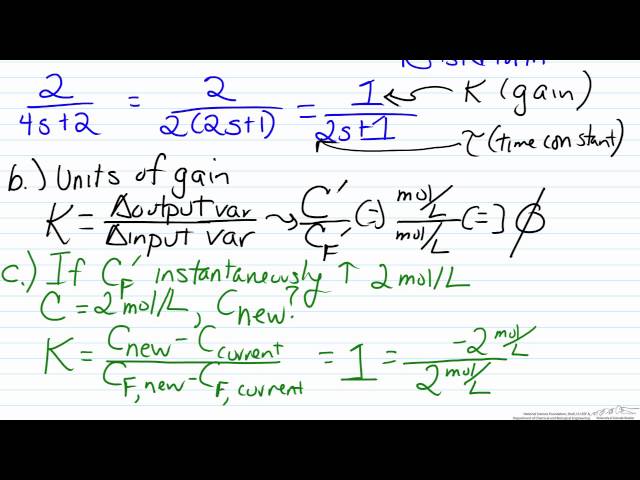 2/(4s+2) = 2/(2(2s+1)) = 1/(2s+1) K (gain)
τ (time constant)
b.) Units of gain
K = Δoutput var/Δinput var ⤳ C'/C_F' (=) mol/L/mol/L (=] ∅
c.) If C_F' instantaneously ↑ 2 mol/L
C = 2 mol/L, C_new?
K = (C_new - C_current)/(C_F,new - C_F,current) = 1 = (-2 mol/L)/(2 mol/L)